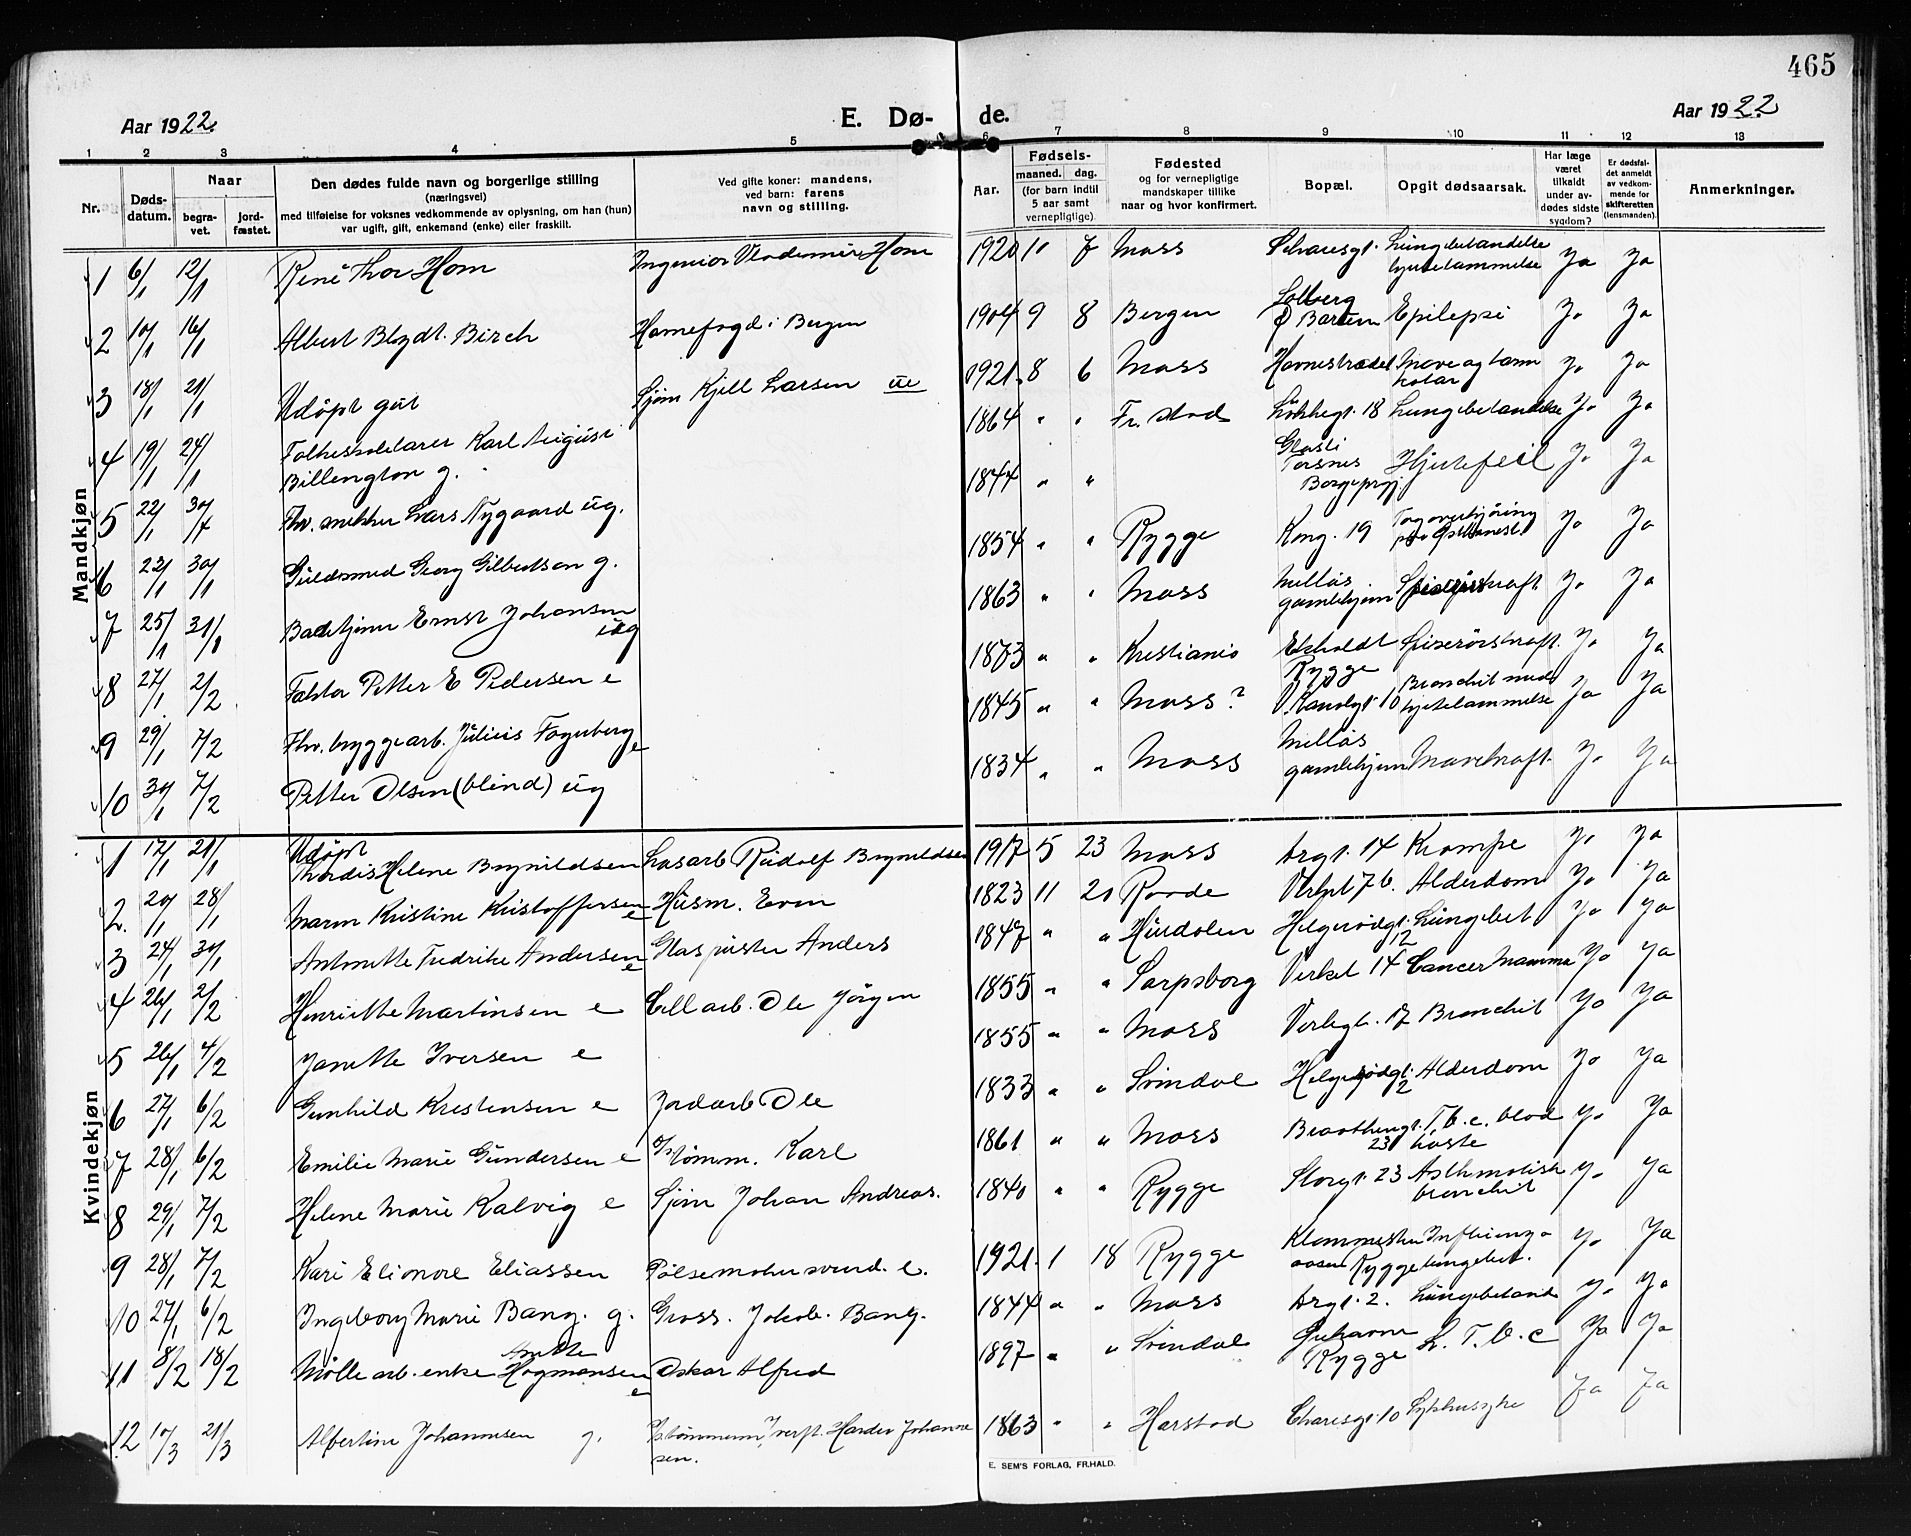 465
Aar 1922.
E. Dø-
de.
Aar 1922.
1 2 3 4 5 6 7 8 9 10 11 12 13
Nr.
Døds-
datum.
Naar
begra-
vet.
jord-
fæstet.
Den dødes fulde navn og borgerlige stilling
(næringsvei)
med tilføielse for voksnes vedkommende av oplysning, om han (hun)
var ugift, gift, enkemand (enke) eller fraskilt.
Ved gifte koner: mandens,
ved barn: farens
navn og stilling.
Aar.
Fødsels-
maaned. dag.
(for barn indtil
5 aar samt
vernepligtige).
Fødested
og for vernepligtige
mandskaper tillike
naar og hvor konfirmert.
Bopæl.
Opgit dødsaarsak.
Har læge
været
tilkaldt
under av-
dødes sidste
sygdom?
Er dødsfal-
det anmeldt
av vedkom-
mende for
skifteretten
(lensmanden).
Anmerkninger.
Mandkjøn
1 6/1 12/1 René Thor Hom Ingeniør Hom 1920 11 7 Moss Lungebetændelse Ja Ja
2 10/1 16/1 Albert Blydt. Birch Havnefogd i Bergen 1904 9 8 Bergen Solberg Epilepsi Ja Ja
3 18/1 21/1 Udøpt gut Sjøm Kjell Larsen ue 1921. 8 6 Moss Havnestrædet Mave og tarm Ja Ja
4 19/1 24/1 Karl August
Billengton g. 1864 " " Fr. stad 18 Lungebetændelse Ja Ja
5 22/1 Fhv. snekker Lars Nygaard ug. 1844 " " Torsnes
Hjertefeil Ja Ja
6 22/1 30/1 Guldsmed Georg Gilbertson g. 1854 " " Rygge Kong. 19 Ja Ja
7 25/1 31/1 Ernst Johansen
ug 1863 " " Moss Melløs
gamlehjem Ja Ja
8 27/1 2/2 Faktor Petter E Pedersen e 1873 " " Kristiania Ekholdt
Rygge Spiserørskræft. Ja Ja
9 29/1 7/2 Fhv. bryggearb. Julius Fagerberg e 1845 " " Moss? 10 Bronchit med
hjertelammelse Ja Ja
10 30/1 7/2 Petter Olsen (blind) ug 1834 " " Moss Melløs
gamlehjem Mavekræft. Ja Ja
Kvindekjøn
1 17/1 21/1 Udøpt
Thordis Helene Brynildsen Losarb Rudolf Brynildsen 1917 5 23 Moss 14 Krampe Ja Ja
2. 20/1 28/1 Maren Kristine Kristoffersen e Husm. Even 1823 11 20 Raade 76. Alderdom Ja Ja
3 24/1 30/1 Antonette Fredrike Andersen e Glaspuster Anders 1847 " " Helgerødgt.
12 Lungebet Ja Ja
4 26/1 2/2 Henriette Martinsen e Cell arb. Ole Jørgen 1855 " " Sarpsborg Verket 14 Cancer Mamma Ja Ja
5 26/1 4/2 Janette Iversen e 1855 " " Moss 17 Bronchit Ja Ja
6 27/1 6/2 Gunhild Kristensen e Jordarb Ole 1833 " " Svindal Helgerødgt.
2 Alderdom Ja Ja
7 28/1 6/2 Emilie Marie Gundersen e Tømm. Karl 1861 " " Moss
23 T. b. c. blod
hoste Ja Ja
8 29/1 7/2 Helene Marie Kalvig e Sjøm Johan Andreas. 1840 " " Rygge Storgt. 23 Asthmatisk
bronchit Ja Ja
9 28/1 7/2 Kari Elionore Eliassen Pølsemaker 1921. 1 18 Rygge
aasen Rygge Influenza
lungebet. Ja Ja
10 27/1 6/2 Ingeborg Marie Bang. g. Gross. Jakob. Bang. 1844 " " Moss 2. Lungebetænd Ja Ja
11 8/2 18/2 Mølle arb. enke Anette
Hagmansen e Oskar Alfred 1897 " " Svindal
Rygge L. T. b. c Ja Ja
12 10/3 21/3 Albertine Johannesen g. Johanne
sen. 1863 " " Harstad 10 Ja Ja
E. SEM'S FORLAG, FR.HALD.